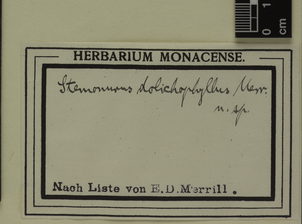 0 1
cm
HERBARIUM MONACENSE.
Stemonurus dolichophyllus Merr.
n. sp.
Nach Liste von E.D.Merrill.